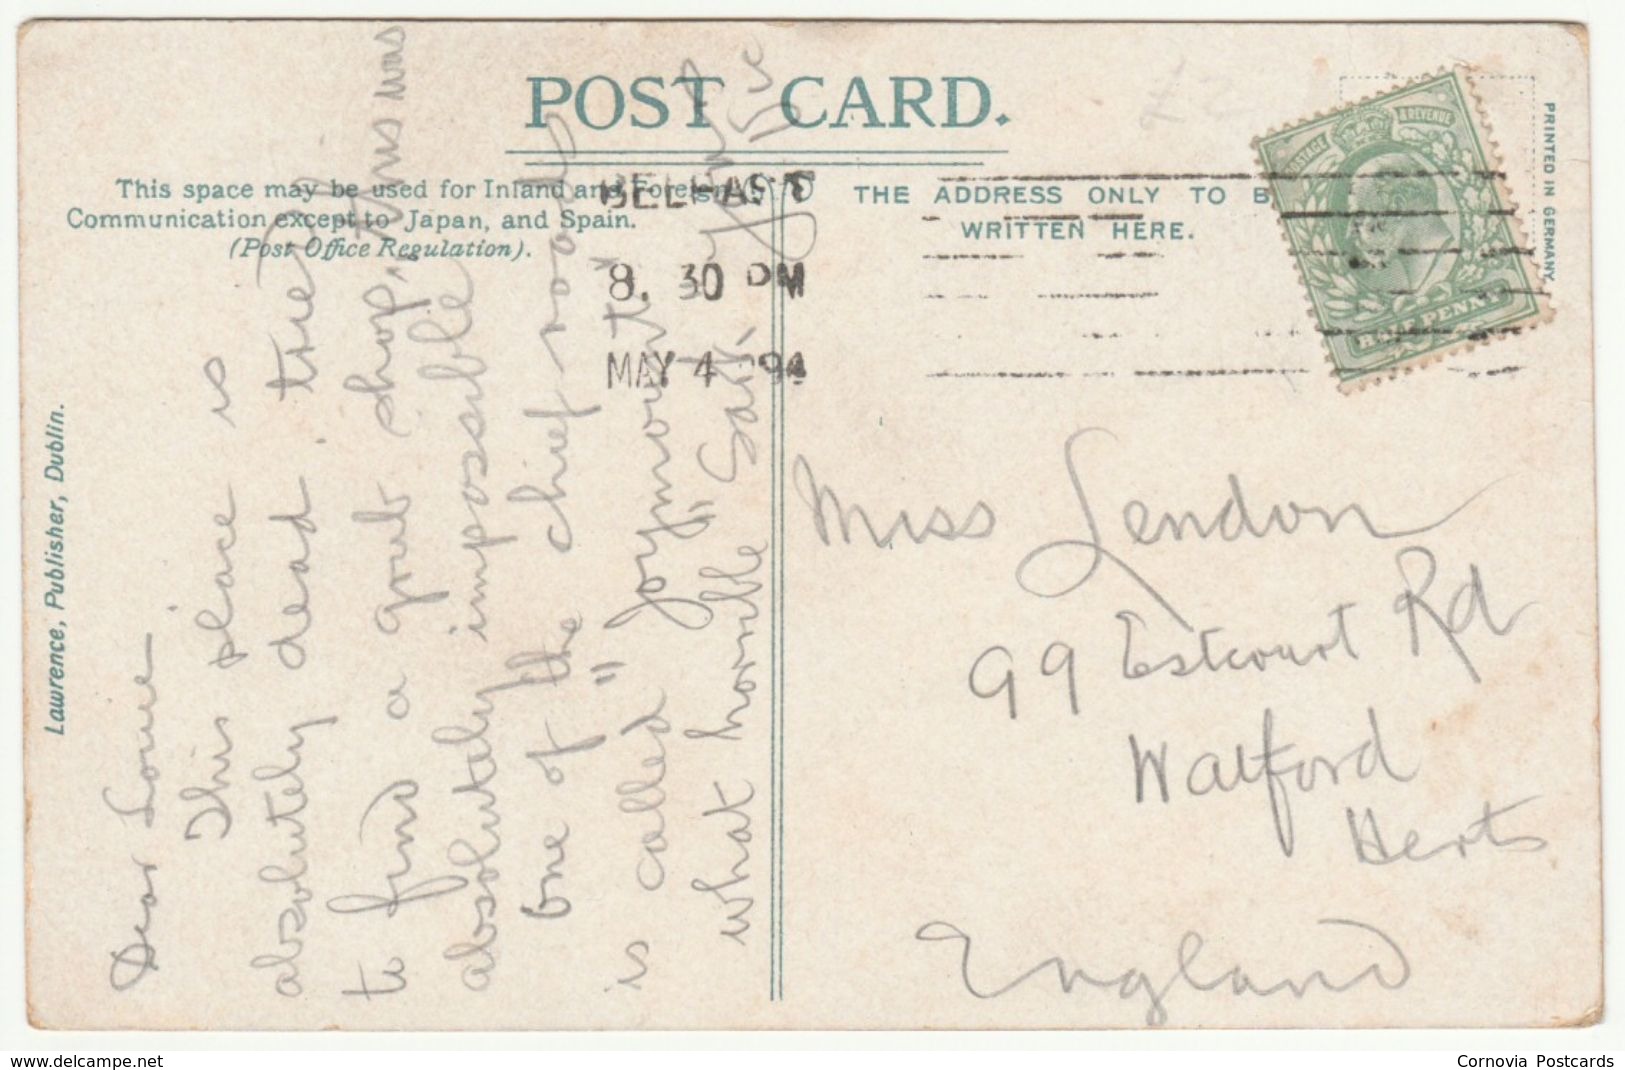 POST CARD.
This space may be used for Inland and Foreign
Communication except to Japan, and Spain.
(Post Office Regulation).
THE ADDRESS ONLY TO B
WRITTEN HERE.
BELFAST
8. 30 PM
MAY 4
POSTAGE & REVENUE
HALFPENNY
PRINTED IN GERMANY.
Lawrence, Publisher, Dublin.
Dear
This place is
absolutely dead.
to find a shop, this was
absolutely impossible
one of the chief roads
is called "Joymount"
what horrible
Miss Lendon
99 Estcourt Rd
Watford
Herts
England
delcampe.net
Cornovia Postcards